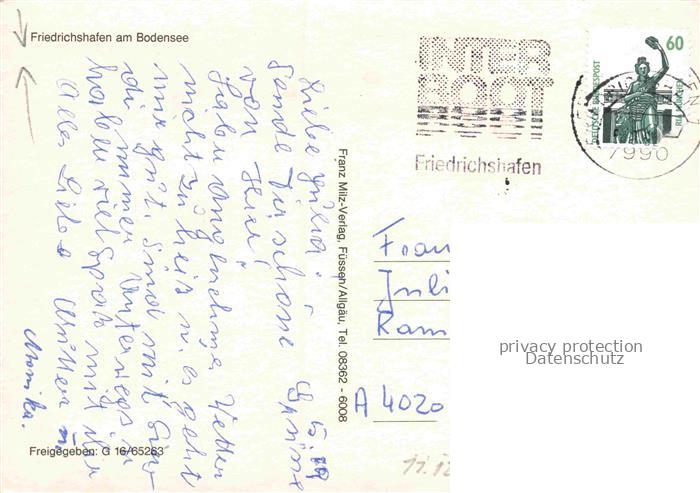 Friedrichshafen am Bodensee
INTER
BOOT
Friedrichshafen
60
DEUTSCHE BUNDESPOST
7990
Liebe Julia!
Sende Dir schöne Grüsse
von Hier!
Haben angenehmes Wetter
nicht zu heiß u. es geht
mir gut. Sind mit
immer Unterwegs u.
haben viel Spaß mit ihr
Alles Liebe
Monika.
Franz Milz-Verlag, Füssen/Allgäu, Tel. 08362 - 6008
Frau
Juli
Ram
A 4020
privacy protection
Datenschutz
Freigegeben: G 16/65263